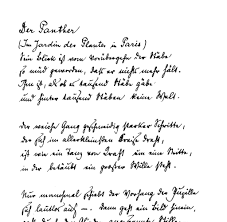 Der Panther
(Im Jardin des Plantes in Paris)
Sein Blick ist vom Vorübergehn der Stäbe
so müd geworden, daß er nichts mehr hält.
Ihm ist, als ob es tausend Stäbe gäbe
und hinter tausend Stäben keine Welt.
Der weiche Gang geschmeidig starker Schritte,
der sich im allerkleinsten Kreise dreht,
ist wie ein Tanz von Kraft um eine Mitte,
in der betäubt ein großer Wille steht.
Nur manchmal schiebt der Vorhang der Pupille
sich lautlos auf –. Dann geht ein Bild hinein,